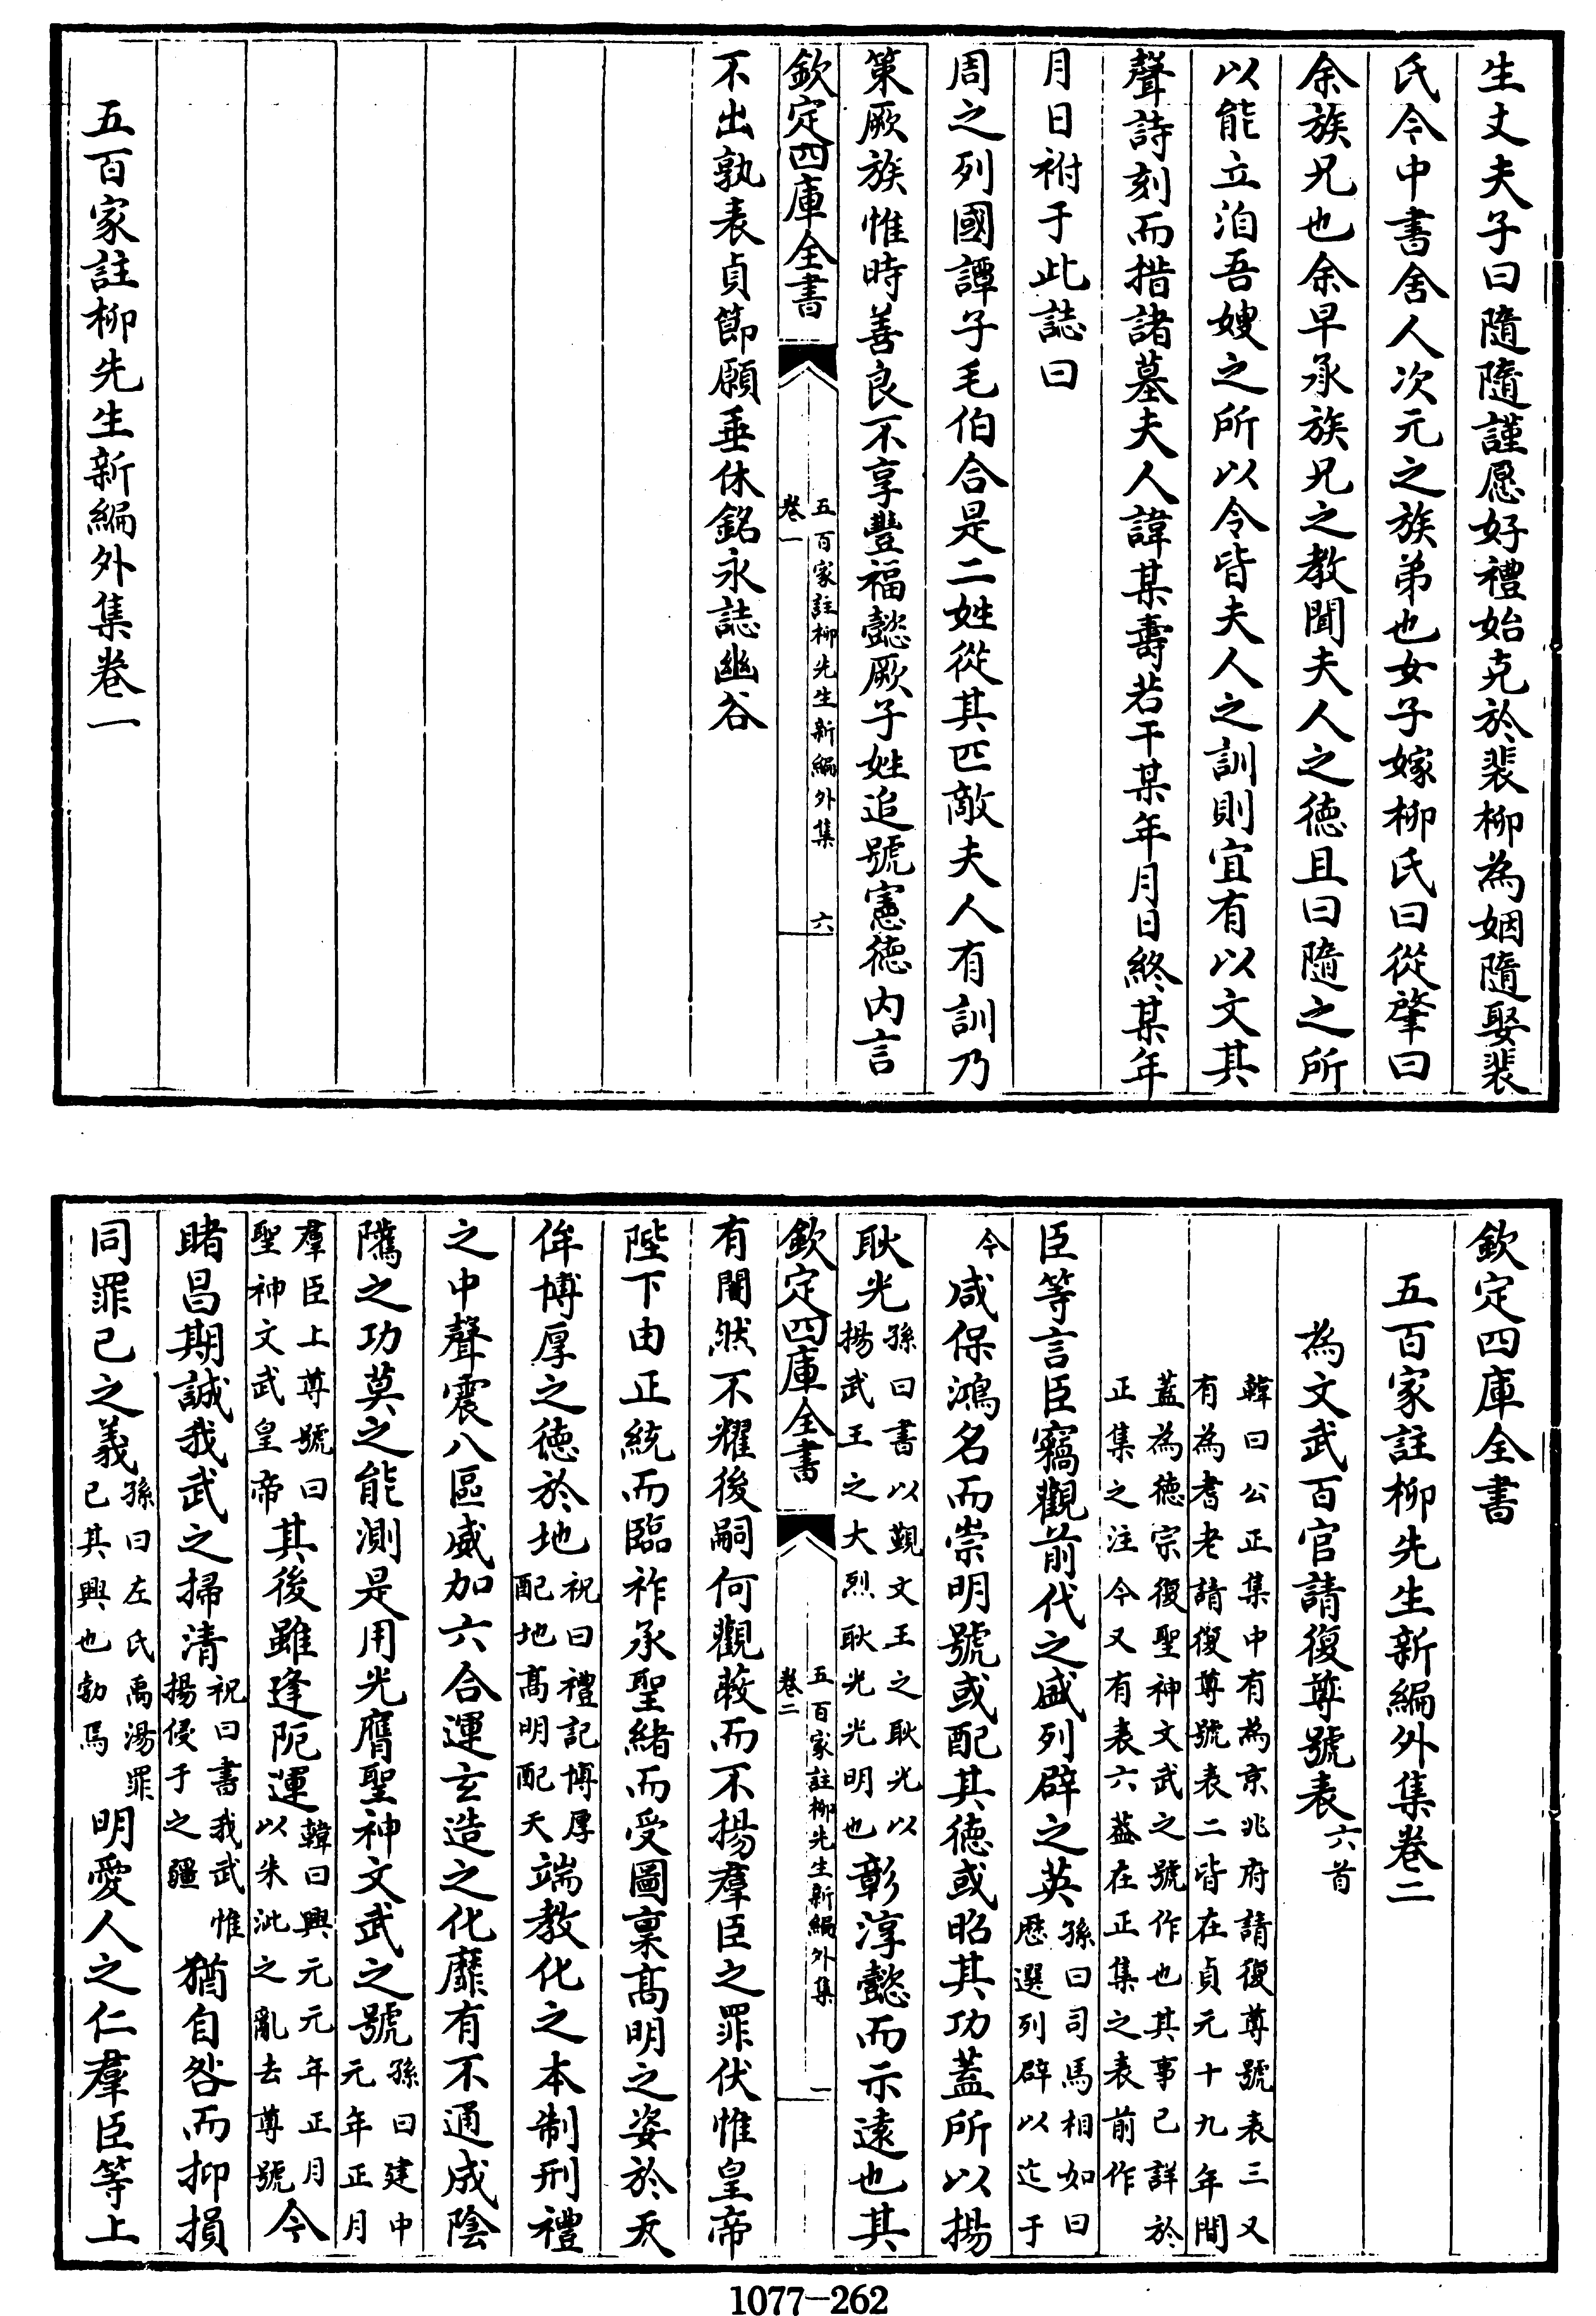 生丈夫子曰隨隨謹愿好禮始克於裴柳為姻隨娶裴
氏今中書舍人次元之族弟也女子嫁柳氏曰從肇曰
余族兄也余早承族兄之教聞夫人之德且曰隨之所
以能立洎吾嫂之所以令皆夫人之訓則宜有以文其
聲詩刻而措諸墓夫人諱某壽若干某年月日終某年
月日祔于此誌曰
周之列國譚子毛伯合是二姓從其匹敵夫人有訓乃
策厥族惟時善良不享豐福懿厥子姓追號憲德内言
欽定四庫全書
五百家註柳先生新編外集
卷一
六
不出孰表貞節願垂休銘永誌幽谷
五百家註柳先生新編外集卷一
欽定四庫全書
五百家註柳先生新編外集卷二
為文武百官請復尊號表六首
韓曰公正集中有為京兆府請復尊號表三又
有為耆老請復尊號表二皆在貞元十九年間
蓋為德宗復聖神文武之號作也其事已詳於
正集之注今又有表六蓋在正集之表前作
臣等言臣竊觀前代之盛列辟之英孫曰司馬相如曰歴選列辟以迄于
今咸保鴻名而崇明號或配其德或昭其功蓋所以揚
耿光孫曰書以覲文王之耿光以揚武王之大烈耿光光明也彰淳懿而示遠也其
欽定四庫全書
五百家註柳先生新編外集
卷二
一
有闇然不耀後嗣何觀蔽而不揚羣臣之罪伏惟皇帝
陛下由正統而臨祚承聖緒而受圖稟高明之姿於天
侔博厚之德於地祝曰禮記博厚配地高明配天端教化之本制刑禮
之中聲震八區威加六合運玄造之化靡有不通成陰
隲之功莫之能測是用光膺聖神文武之號孫曰建中元年正月
羣臣上尊號曰聖神文武皇帝其後雖逢阨運韓曰興元元年正月以朱泚之亂去尊號今
睹昌期誠我武之掃清祝曰書我武惟揚侵于之疆猶自咎而抑損
同罪已之義孫曰左氏禹湯罪已其興也勃焉明愛人之仁羣臣等上
1077-262